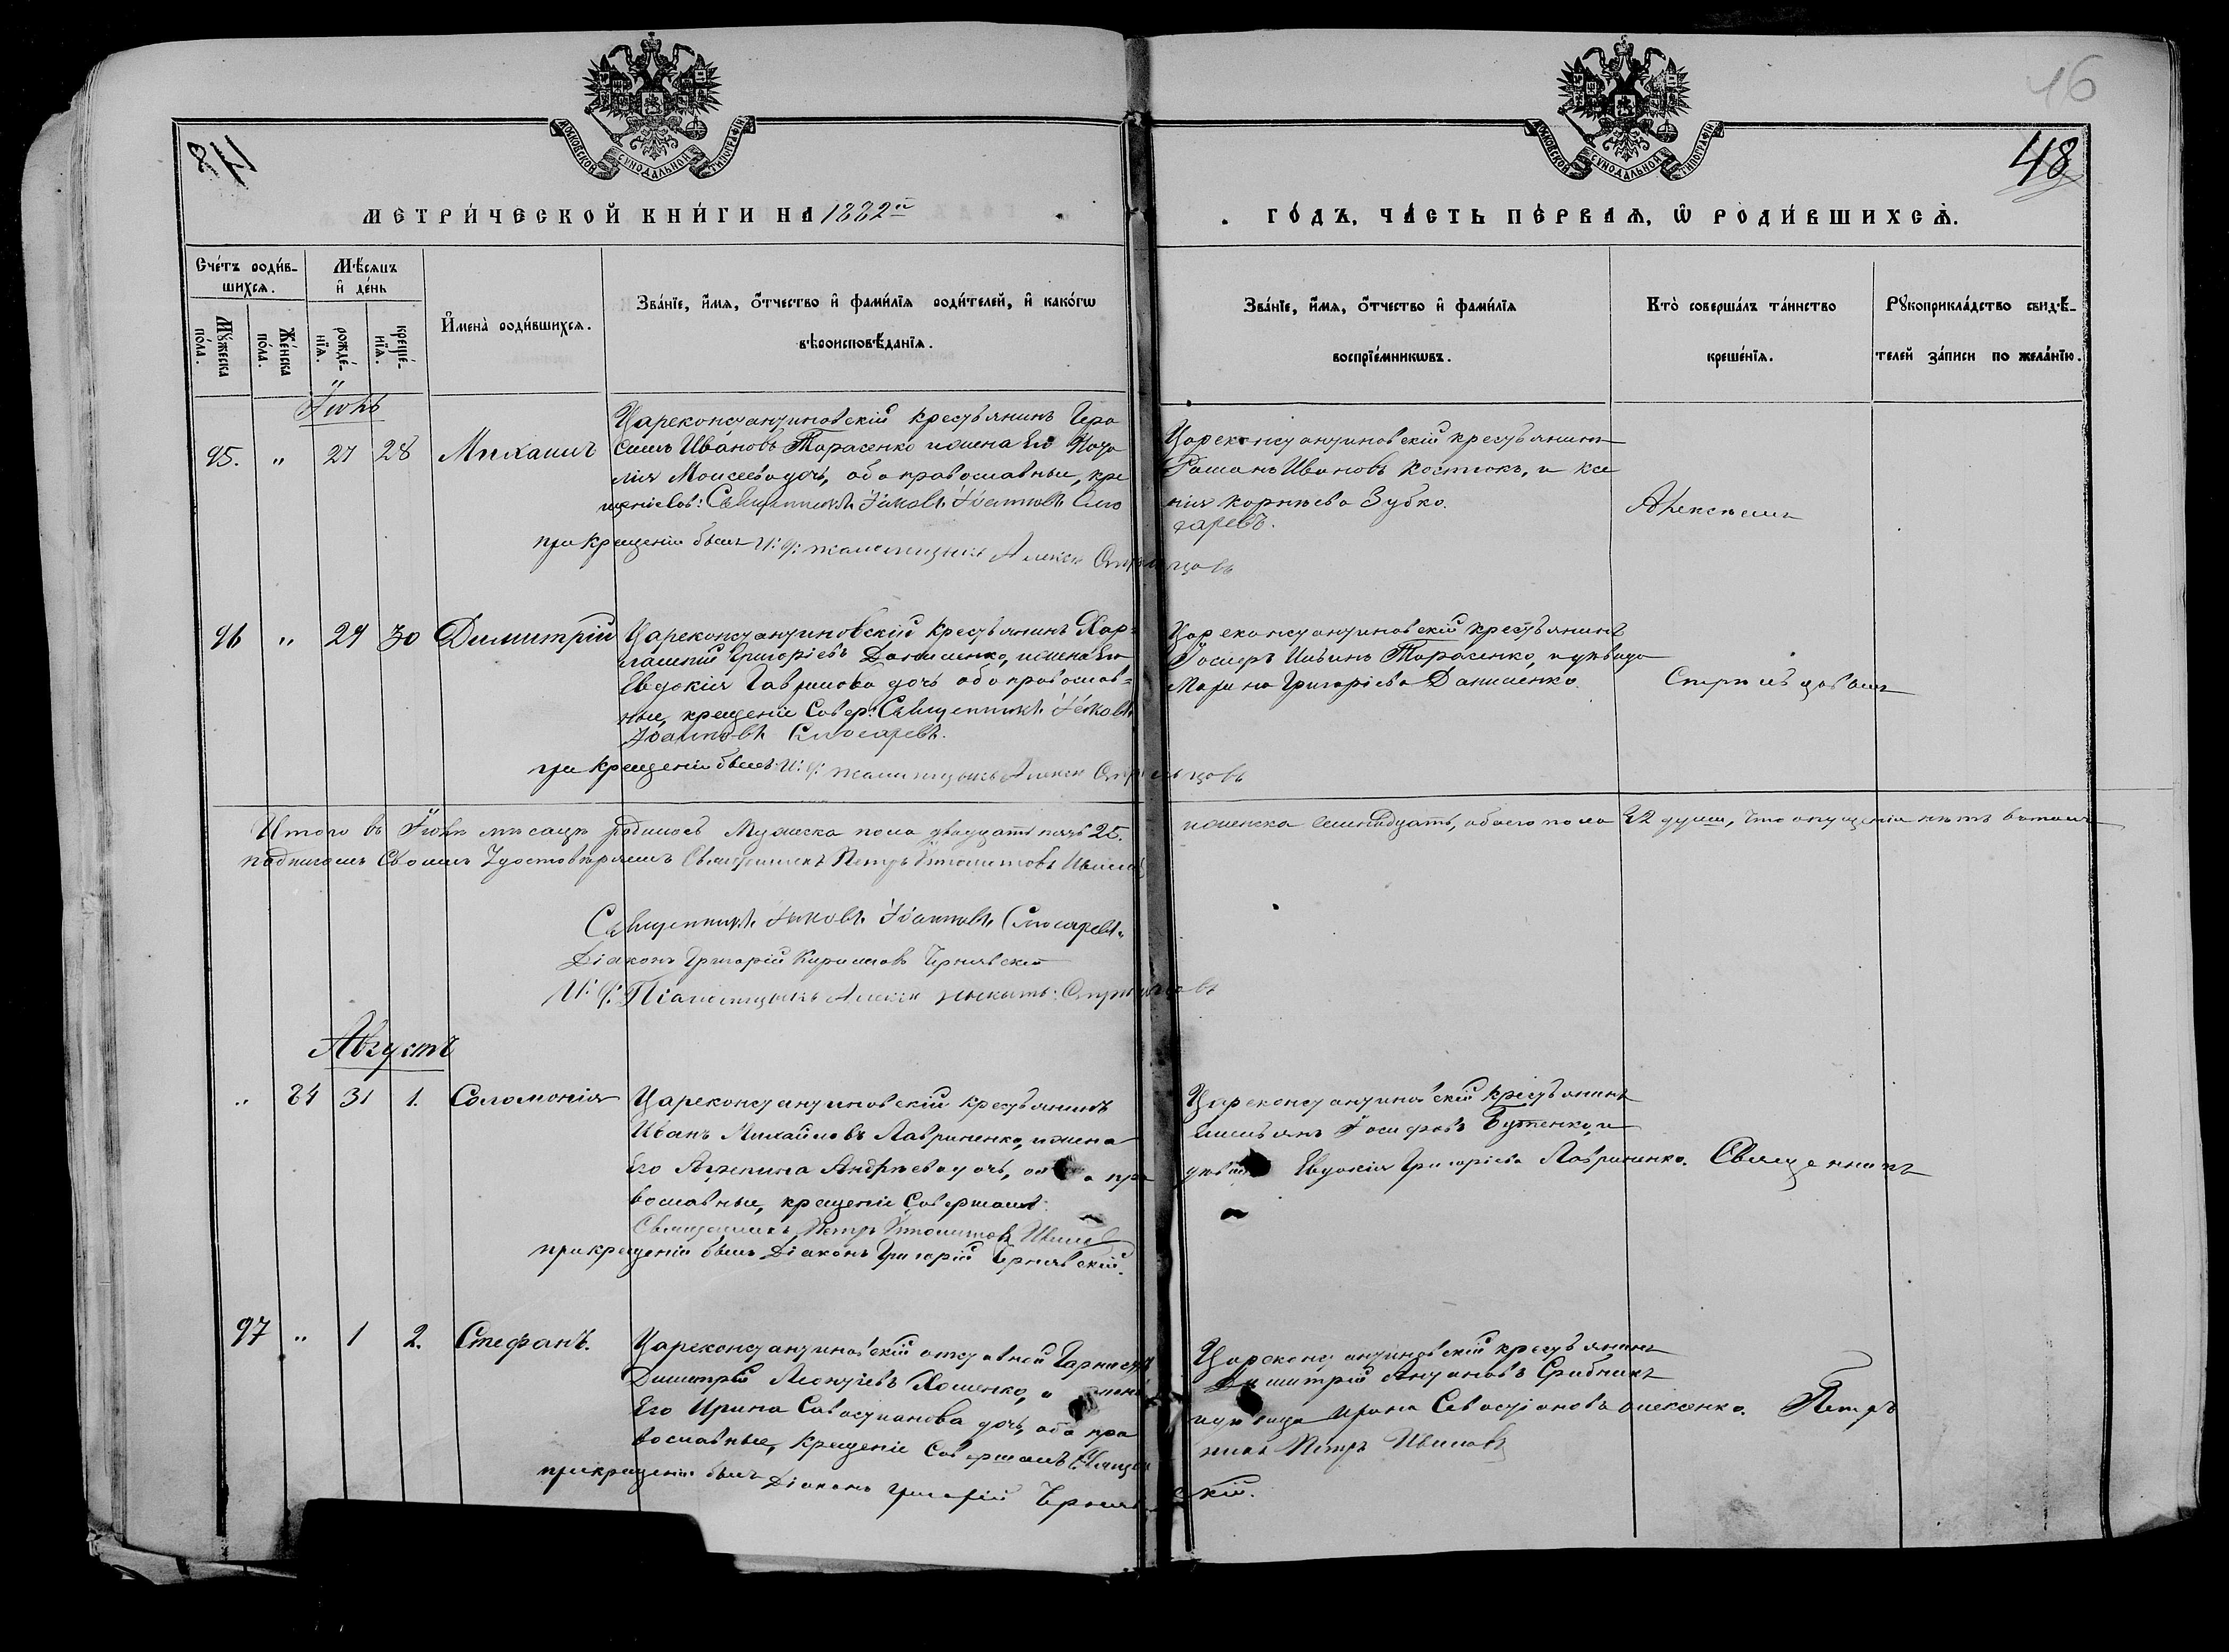 МОСКОВСКОЙ СѴНОДАЛЬНОЙ ТИПОГРАФІИ
МОСКОВСКОЙ СѴНОДАЛЬНОЙ ТИПОГРАФІИ
16
48
МЕТРИ́ЧЕСКОЙ КНИ́ГИ НА 1882й
ГО́ДЪ, ЧА́СТЬ ПЕ́РВАѦ, Ѡ РОДИ́ВШИХСѦ.
Сче́тъ роди́в-
шихсѧ.
Мꙋ́жеска по́ла.
Же́нска по́ла.
Мѣ́сѧцъ
и҆ де́нь
рожде́-нїѧ.
креще́-нїѧ.
И҆мена̀ роди́вшихсѧ.
Зва́нїе, и҆́мѧ, ѻ҆́тчество и҆ фами́лїѧ роди́телей, и҆ како́гѡ
вѣроисповѣ́данїѧ.
Зва́нїе, и҆́мѧ, ѻ҆́тчество и҆ фами́лїѧ
воспрїе́мникѡвъ.
Кто̀ соверша́лъ та́инство
креще́нїѧ.
Рꙋкоприкла́дство свидѣ́-
телей за́писи по жела́нїю.
Іюль
95. " 27 28 Михаилъ
Цареконстантиновскій крестьянинъ Гера
симъ Ивановъ Тарасенко и жена его Ната
лія Моисеева дочь, оба православные, кре
щеніе сов: Священникъ Іаковъ Іоанновъ Слю
саревъ.
при крещеніи былъ И: д: псаломщика Алексѣй Стрѣльцовъ
Цареконстантиновскій крестьянинъ
Романъ Ивановъ Костюкъ, и ксе
нія Корнѣева Зубко.
Алексѣемъ
96 " 29 30 Димитрій
Цареконстантиновскій крестьянинъ Хар-
лампій Григоріевъ Даниленко, и жена его
Евдокія Гаврилова дочь оба православ-
ные, крещеніе Совер: Священникъ Іаковъ
Іоанновъ Слюсаревъ.
при крещеніи былъ И: д: псаломщика Алексѣй Стрѣльцовъ
Цареконстантиновскій крестьянинъ
Іосифъ Ильинъ Тарасенко, и дѣвица
Марина Григоріева Даниленко.
Стрѣльцовымъ
Итого въ Іюлѣ мѣсяцѣ родилось Мужеска пола двадцать пять 25. и женска семнадцать, обоего пола 42 души, что опущенія нѣтъ въ томъ
подписомъ Своимъ Удостовѣряемъ Священникъ Петръ
Священникъ Іаковъ Іоанновъ Слюсаревъ.
Діаконъ Григорій Кириловъ Чернявскій
И: д: Псаломщика Алексѣй Никит: Стрѣльцовъ
Августъ
" 84 31 1. Соломонія
Цареконстантиновскій крестьянинъ
Иванъ Михайловъ Лавриненко, и жена
Его Агрепина Андрѣева дочь, оба пра
вославные, крещеніе Совершалъ:
Священникъ Петръ
при крещеніи былъ Діаконъ Григорій Чернявскій.
Цареконстантиновскій крестьянинъ
Емельянъ Іосифовъ Бутенко, и
дѣвица Евдокія Григоріева Лавриненко.
Священникъ
97 " 1 2. Стефанъ.
Цареконстантиновскій отставной
Димитрій Леонтіевъ Хоменко, и жена
Его Ирина Савостианова дочь, оба пра
вославные, Крещеніе Совершалъ Священ
никъ Петръ
при крещеніи былъ Діаконъ Григорій Чернявскій.
Цареконстантиновскій крестьянинъ
Димитрій Антоновъ Срибникъ
и дѣвица Ирина Севостіанова
Петръ